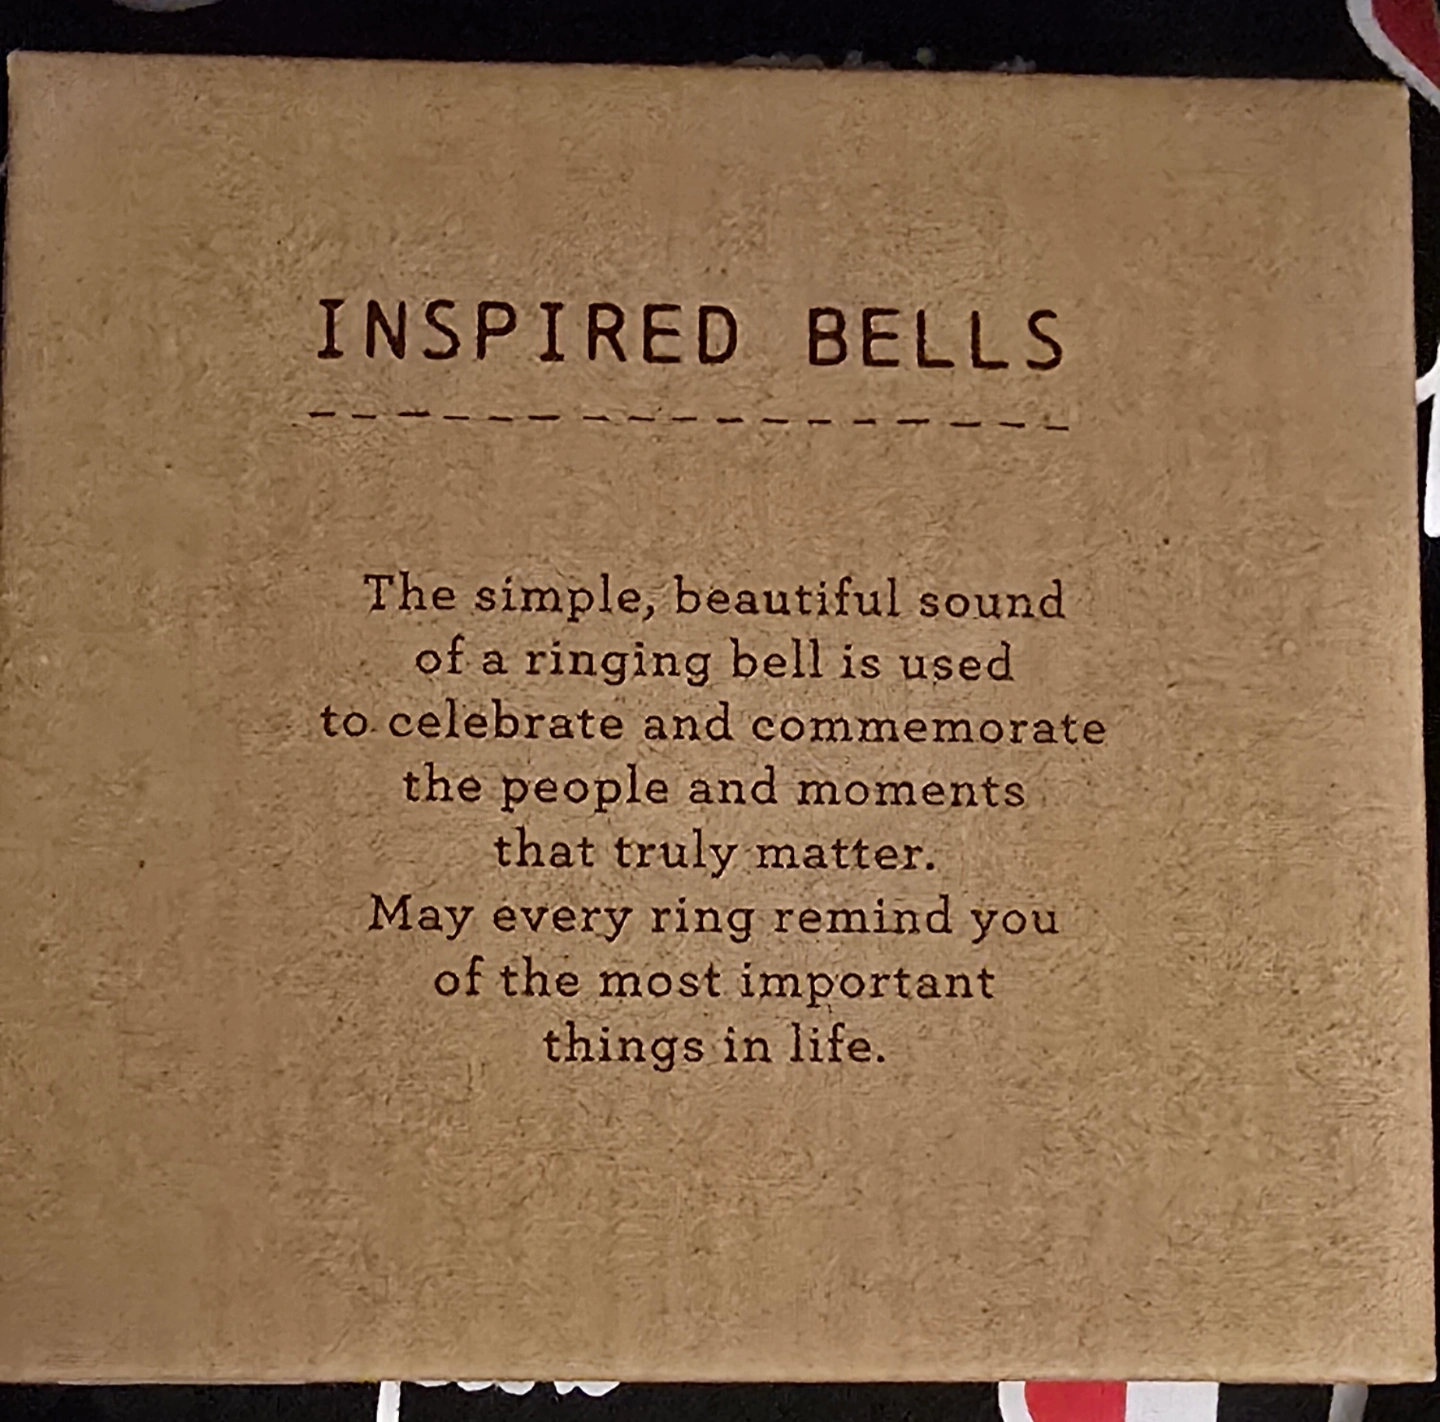 INSPIRED BELLS
The simple, beautiful sound
of a ringing bell is used
to celebrate and commemorate
the people and moments
that truly matter.
May every ring remind you
of the most important
things in life.